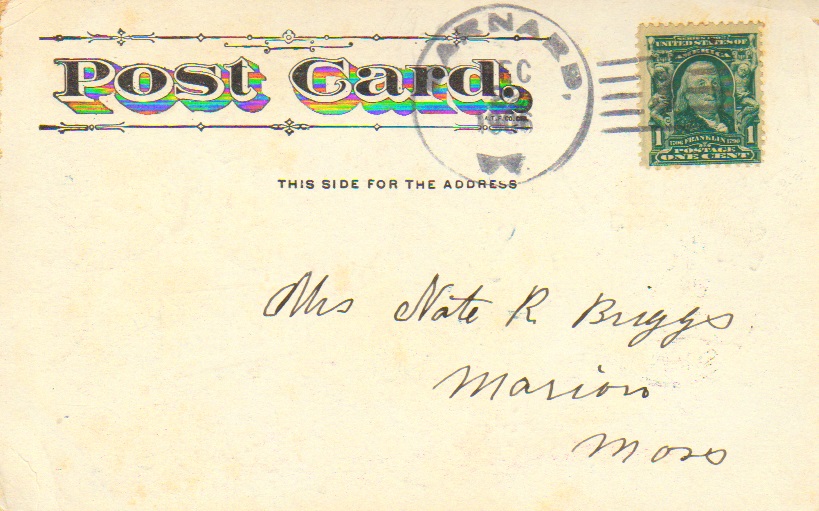 Post Card.
THIS SIDE FOR THE ADDRESS
BARNARD,
DEC
SERIES 1902
UNITED STATES OF
AMERICA
1 1706 FRANKLIN 1790 1
POSTAGE
ONE CENT
Mrs Nate R Briggs
Marion
Mass